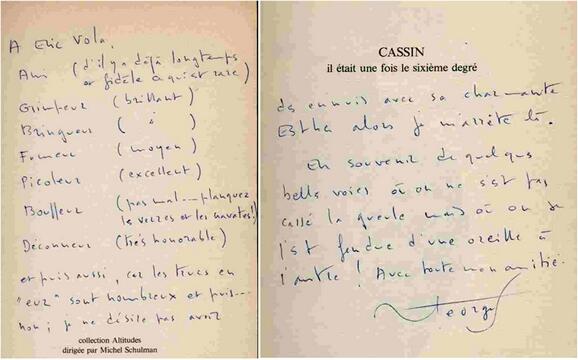 A Eric Vola,
Ami (d'il y a déjà longtemps
et fidèle ce qui est rare)
Grimpeur (brillant)
Bringueur (
Fumeur (moyen)
Picoleur (excellent)
Bouffeur (pas mal--- planquez
les verres et les navets!)
Déconneur (très honorable)
et puis aussi, car les trucs en
"eur" sont nombreux et puis---
non; je ne désire pas avoir
collection Altitudes
dirigée par Michel Schulman
CASSIN
il était une fois le sixième degré
des ennuis avec sa charmante
Esther alors je m'arrête là.
En souvenir de quelques
belles voies où on ne s'est pas
cassé la gueule mais où on se
l'est fendue d'une oreille à
l'autre! Avec toute mon amitié.
Georges